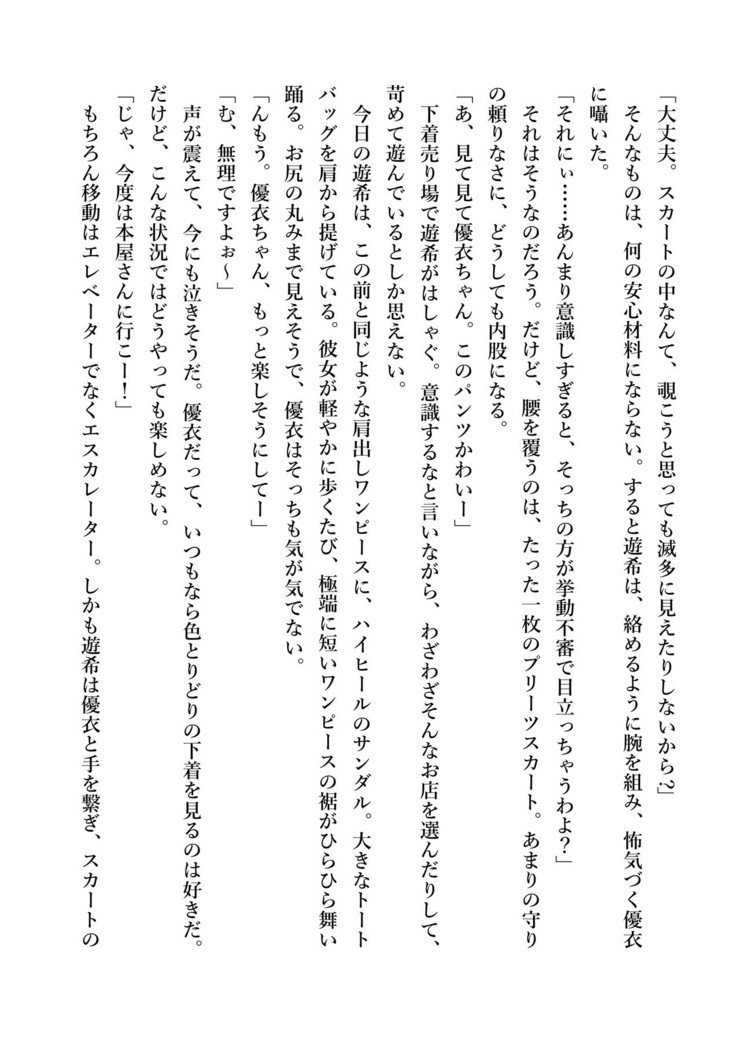 「大丈夫。スカートの中なんて、覗こうと思っても滅多に見えたりしないから?」
　そんなものは、何の安心材料にならない。すると遊希は、絡めるように腕を組み、怖気づく優衣
に囁いた。
「それにぃ……あんまり意識しすぎると、そっちの方が挙動不審で目立っちゃうわよ?」
　それはそうなのだろう。だけど、腰を覆うのは、たった一枚のプリーツスカート。あまりの守り
の頼りなさに、どうしても内股になる。
「あ、見て見て優衣ちゃん。このパンツかわいー」
　下着売り場で遊希がはしゃぐ。意識するなと言いながら、わざわざそんなお店を選んだりして、
苛めて遊んでいるとしか思えない。
　今日の遊希は、この前と同じような肩出しワンピースに、ハイヒールのサンダル。大きなトート
バッグを肩から提げている。彼女が軽やかに歩くたび、極端に短いワンピースの裾がひらひら舞い
踊る。お尻の丸みまで見えそうで、優衣はそっちも気が気でない。
「んもう。優衣ちゃん、もっと楽しそうにしてー」
「む、無理ですよぉ〜」
　声が震えて、今にも泣きそうだ。優衣だって、いつもなら色とりどりの下着を見るのは好きだ。
だけど、こんな状況ではどうやっても楽しめない。
「じゃ、今度は本屋さんに行こー!」
　もちろん移動はエレベーターでなくエスカレーター。しかも遊希は優衣と手を繋ぎ、スカートの